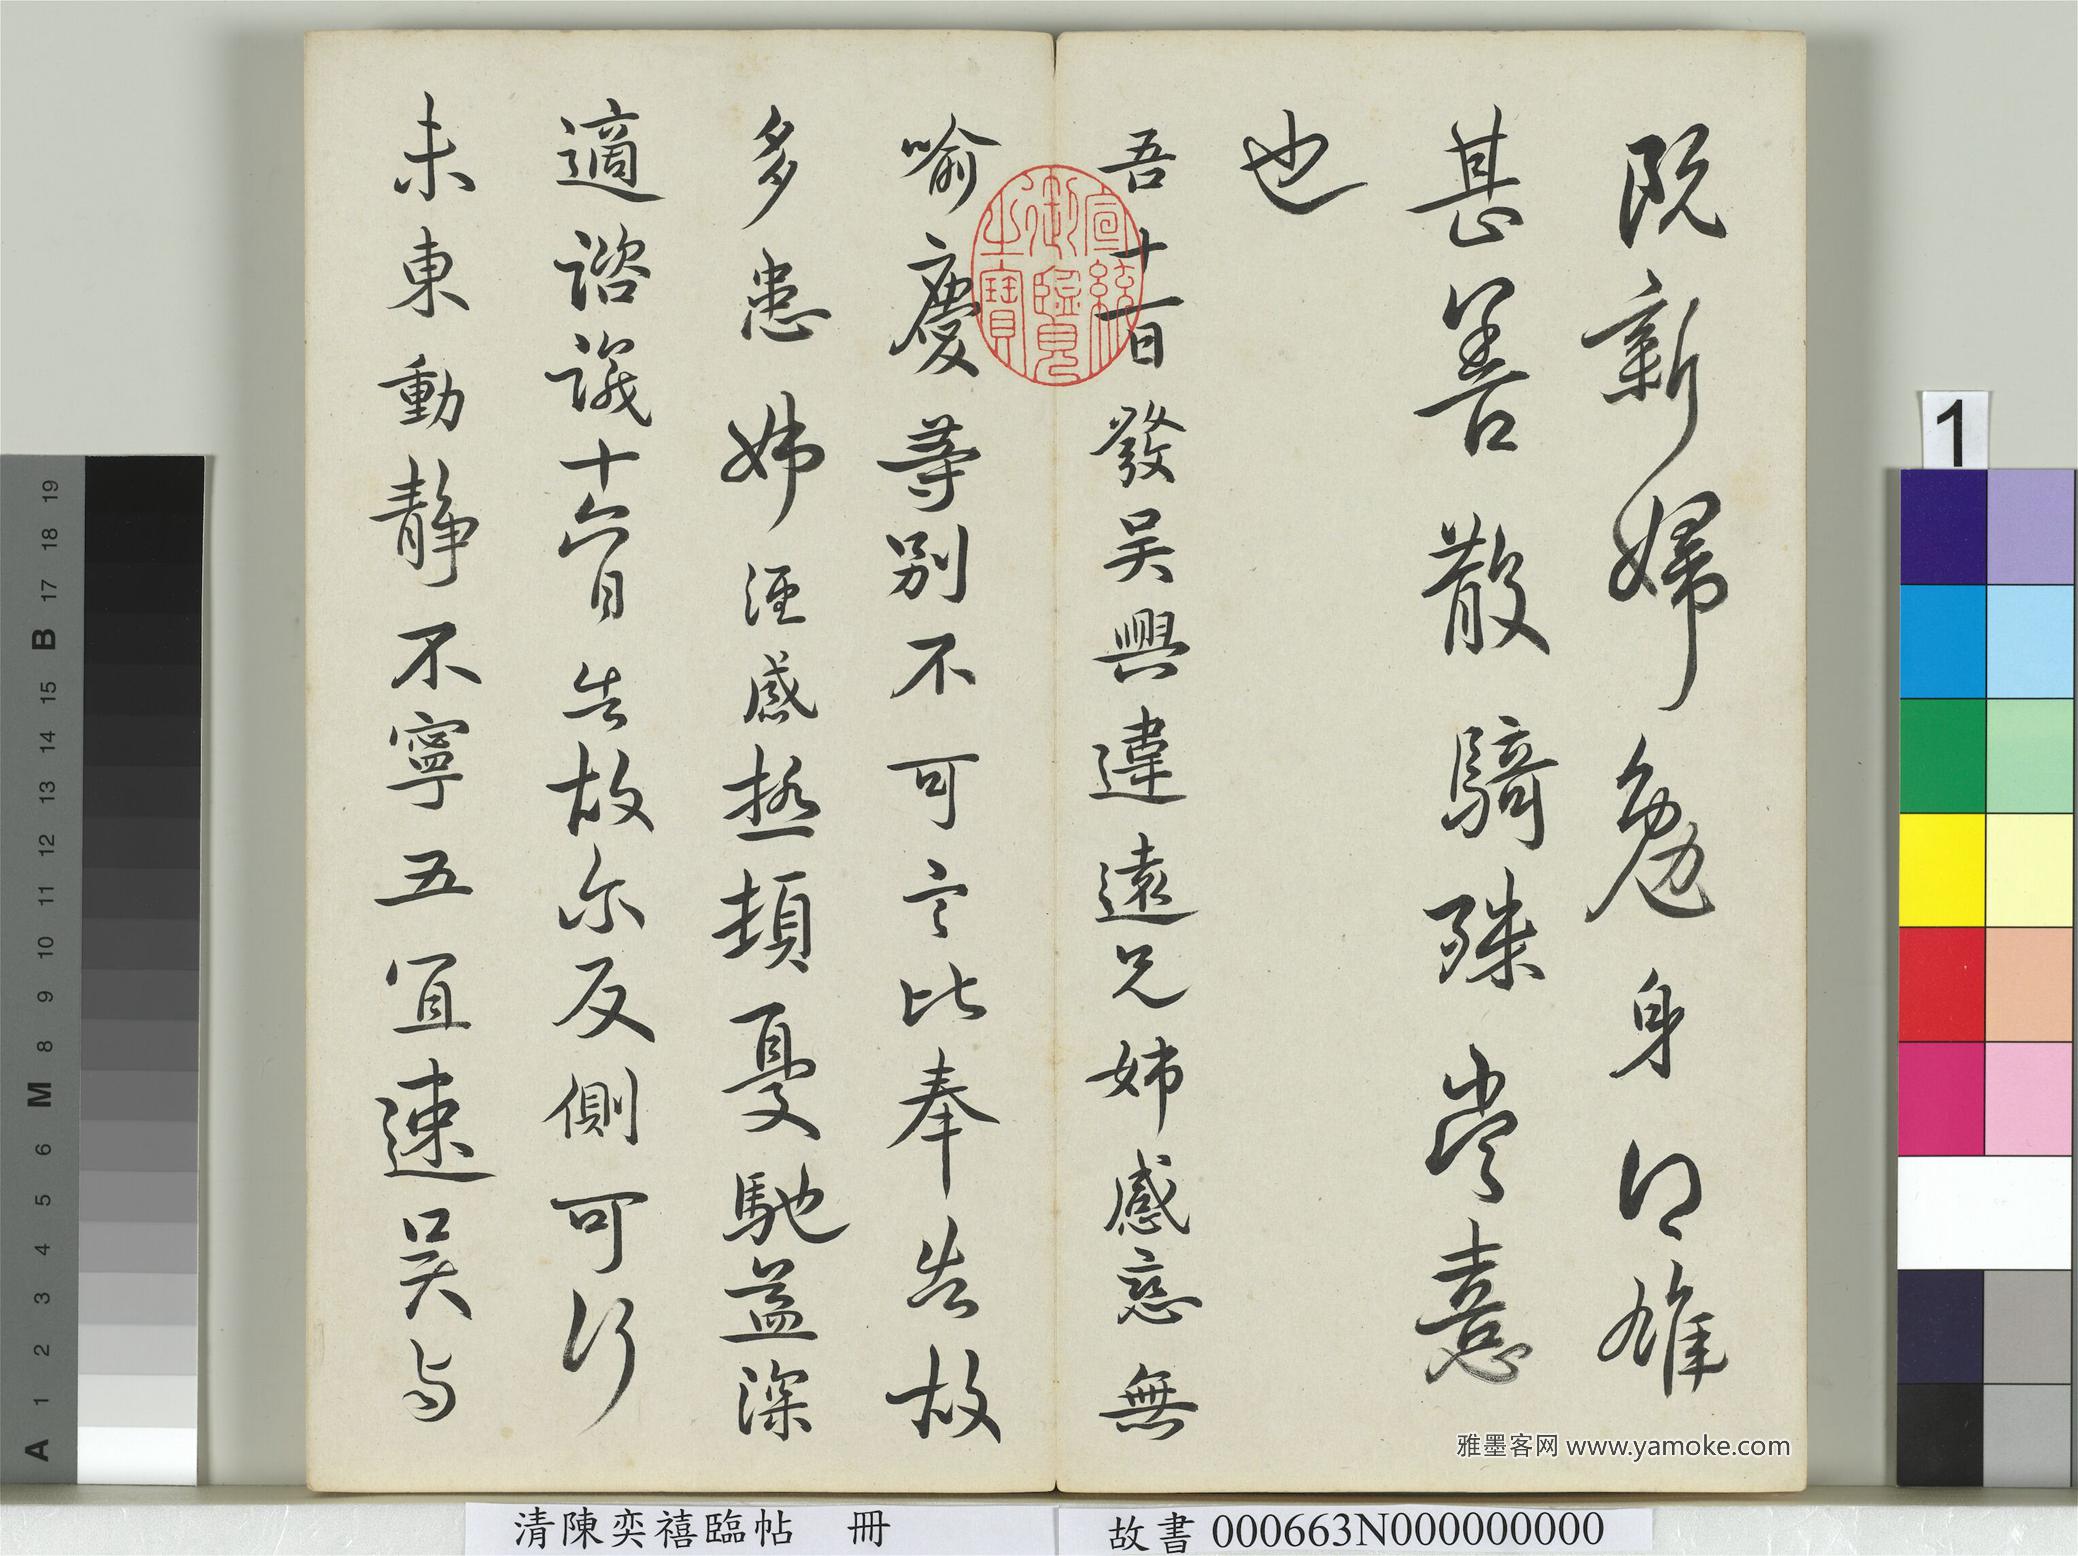 既新婦勉身得雄
甚善散騎殊常憙
也
吾十一日發吳興違遠兄姊感慈無
喻慶等別不可言比奉告故
多患姊經感極頓憂馳益深
適諮議十六日告故尔反側可行
未東動静不寧五宜速吴与
宣統御覽之寶
雅墨客网 www.yamoke.com
清陳奕禧臨帖 冊
故書 000663N000000000
1
A 1 2 3 4 5 6 M 8 9 10 11 12 13 14 15 B 17 18 19